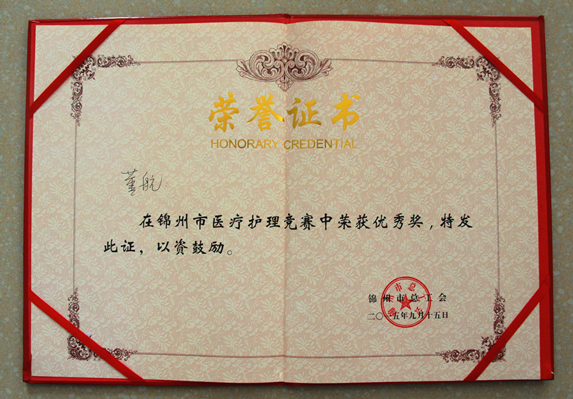 荣誉证书
HONORARY CREDENTIAL
董航
在锦州市医疗护理竞赛中荣获优秀奖，特发
此证，以资鼓励。
锦州市总工会
二〇一五年九月十五日